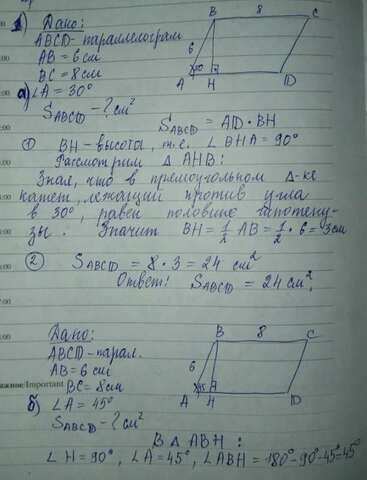 1) Дано:
ABCD - параллелограм
AB = 6 см
BC = 8 см
а) ∠A = 30°
SABCD - ? см²
B 8 C
6
30°
A H D
SABCD = AD · BH
① BH - высота, т.е. ∠BHA = 90°
Рассмотрим Δ AHB:
Зная, что в прямоугольном Δ-ке
катет, лежащий против угла
в 30°, равен половине гипотену-
зы. Значит BH = 1/2 AB = 1/2 · 6 = 3 см
② SABCD = 8 · 3 = 24 см²
Ответ: SABCD = 24 см².
Дано:
ABCD - парал.
AB = 6 см
BC = 8 см
б) ∠A = 45°
SABCD - ? см²
B 8 C
6
45
A H D
В Δ ABH:
∠H = 90°, ∠A = 45°, ∠ABH = 180° - 90° - 45° = 45°
ажное/Important